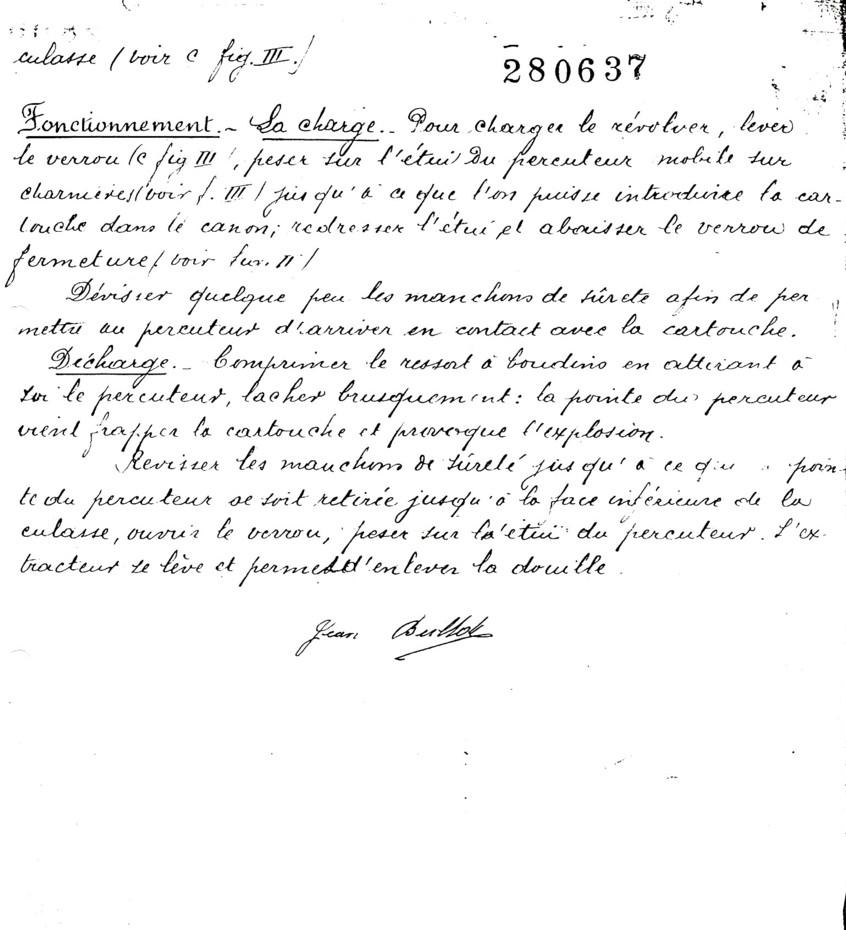 culasse (voir c fig. III.)
280637
Fonctionnement. - La charge. - Pour charger le révolver, lever
le verrou (c fig III), peser sur l'étui du percuteur mobile sur
charnières (voir f. III) jusqu'à ce que l'on puisse introduire la car-
touche dans le canon; redresser l'étui et abaisser le verrou de
fermeture (voir fig. II)
Dévisser quelque peu les manchons de sûreté afin de per
mettre au percuteur d'arriver en contact avec la cartouche.
Décharge. - Comprimer le ressort à boudins en attirant à
soi le percuteur, lacher brusquement: la pointe du percuteur
vient frapper la cartouche et provoque l'explosion.
Revisser les manchons de sûreté jusqu'à ce que poin-
te du percuteur se soit retirée jusqu'à la face inférieure de la
culasse, ouvrir le verrou, peser sur l'étui du percuteur. L'ex-
tracteur se lève et permet d'enlever la douille.
Jean